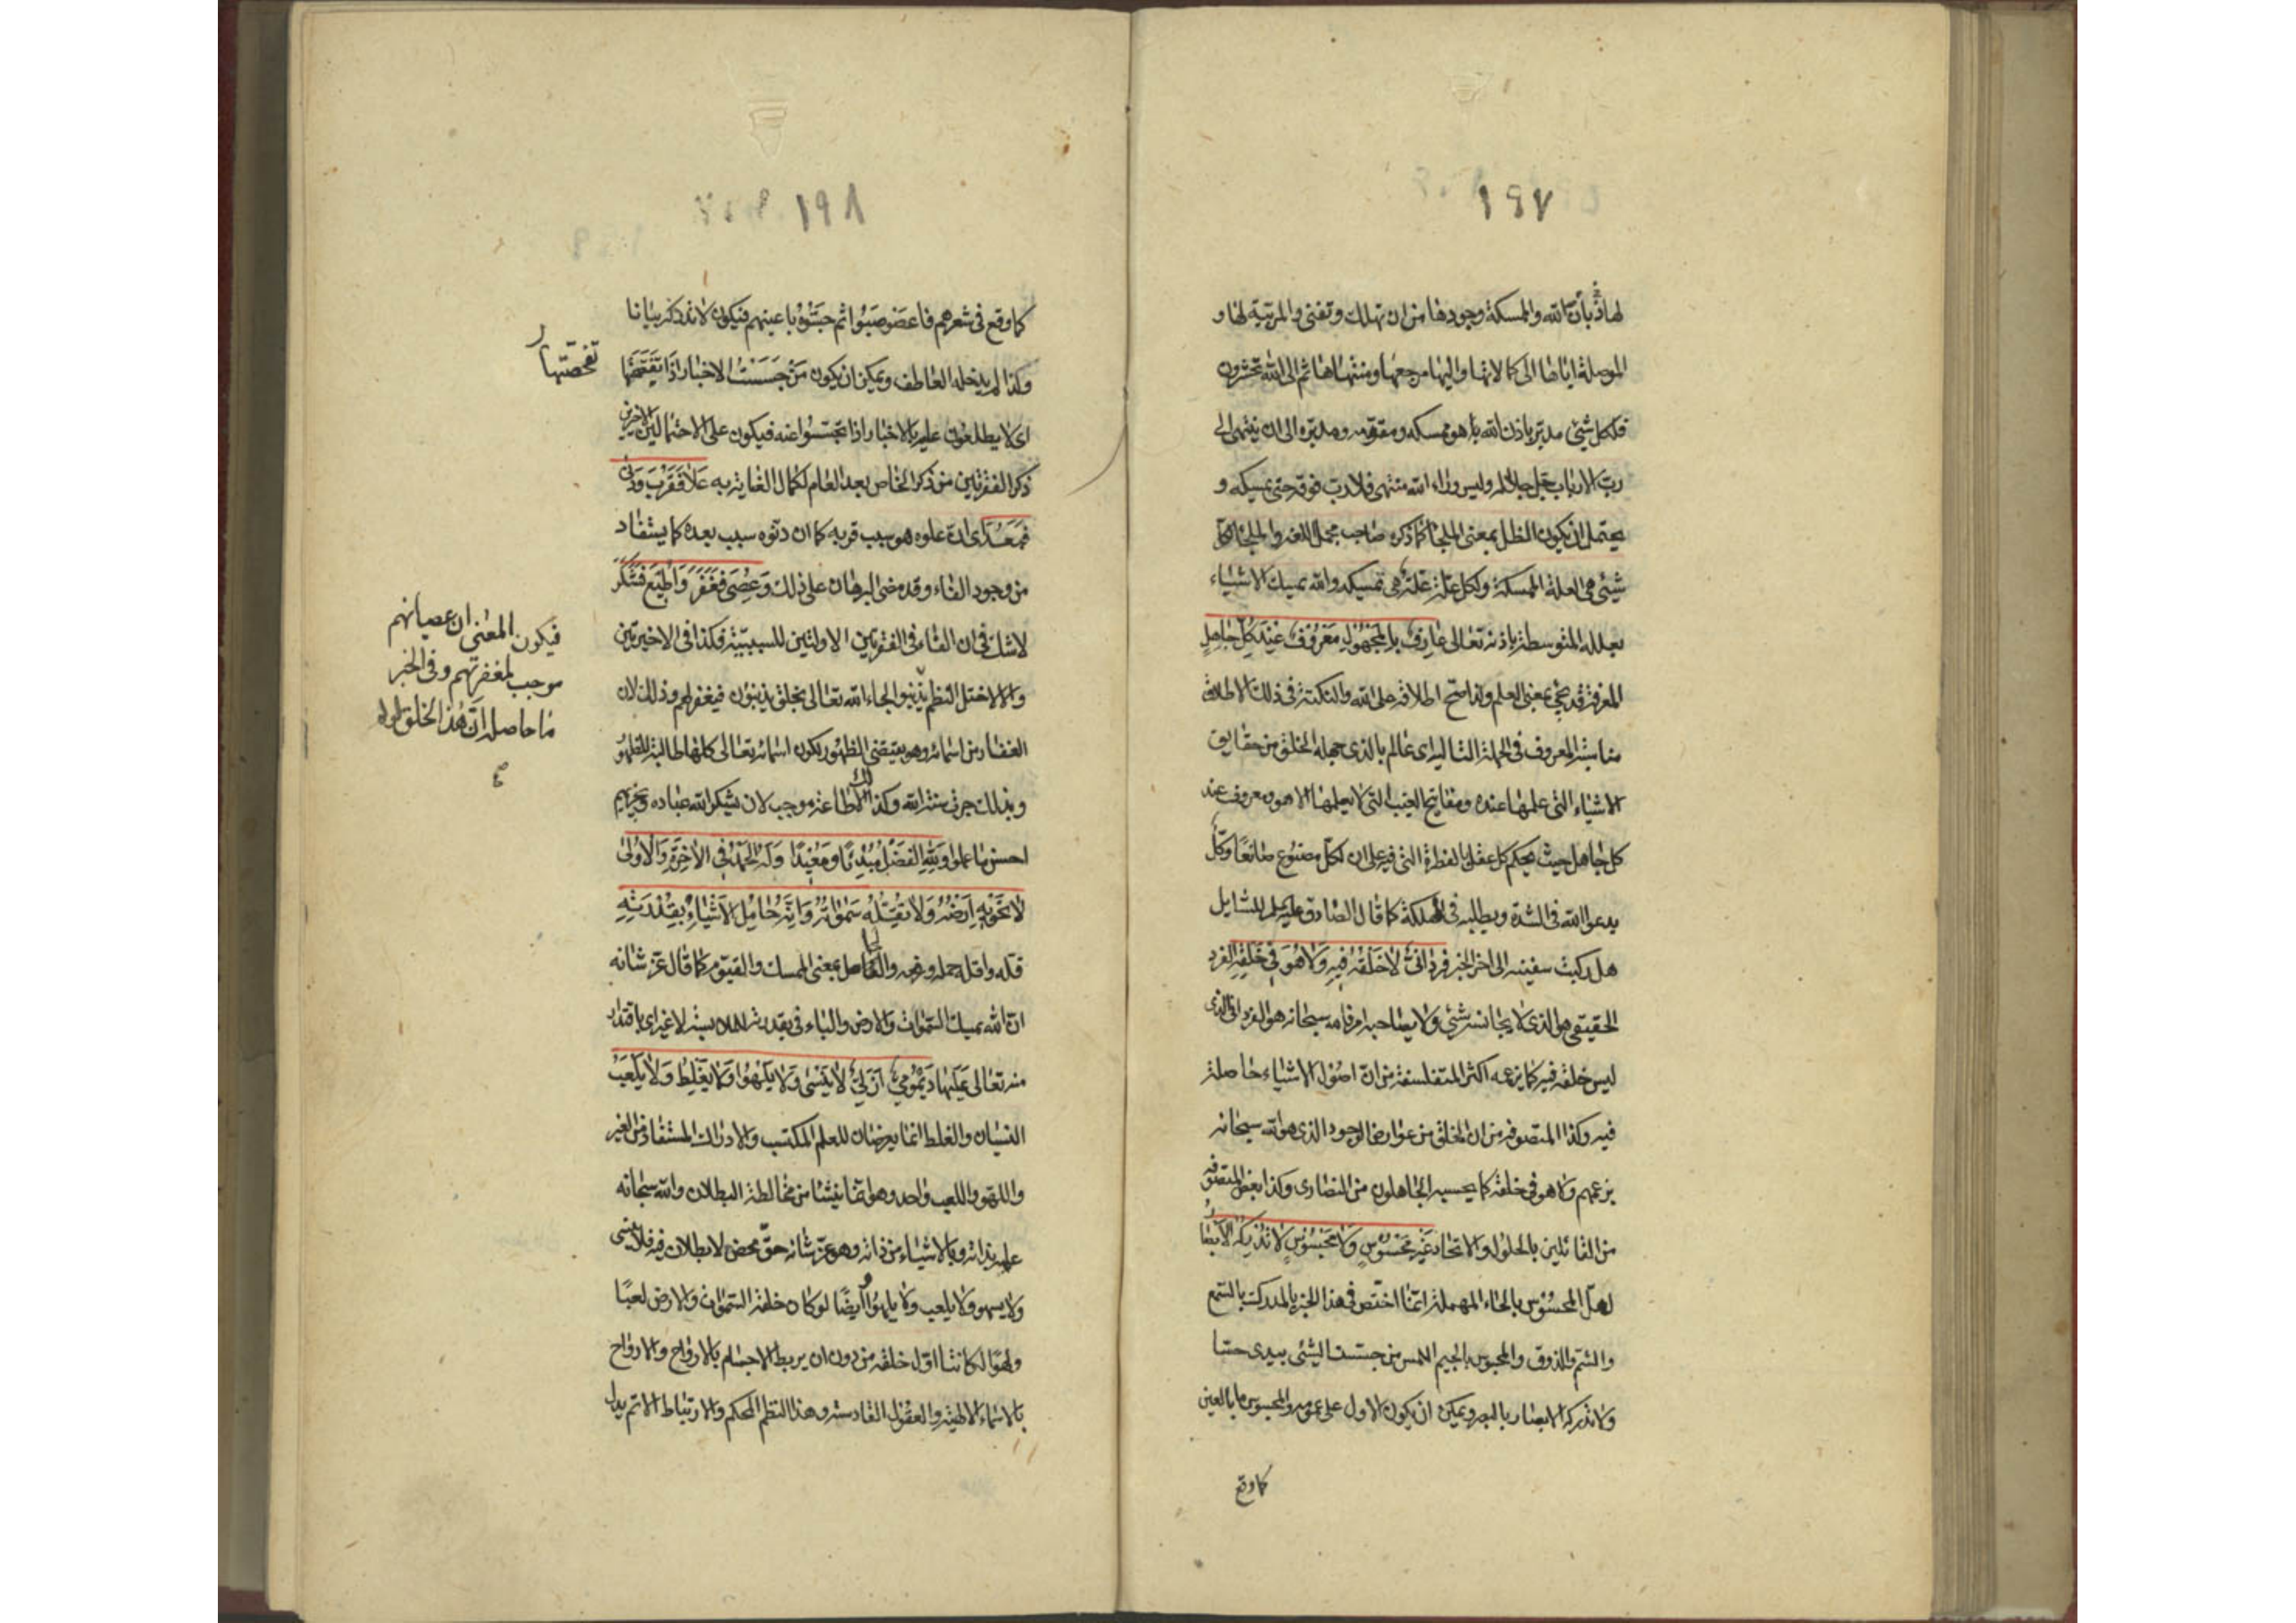 ١٩٧
لها ذٰ بأن الله والممسكة وجودها من ان تهلك وتفنى والمربية لها و
الموصلة اياها الى كمالاتها واليها مرجعها ومنتهاها ثم الى الله تحشرون
فلكل شئ مدبّر باذن الله هو ممسكه ومقوّمه ومدبّره الى ان ينتهى الى
ربّ الارباب جلّ جلاله وليس وراء الله منتهى فلا ربّ فوقه حتى يمسكه و
يحتمل ان يكون الظل بمعنى الملجأ كما ذكره صاحب مجمل اللغة والملجأ لكل
شئ هى العلة الممسكة ولكل علّة علّة هى تمسكه والله يمسك الاشياء
بعلله المتوسطة باذنه تعالى عَارِفٌ بِالْمَجْهُولِ مَعْرُوفٌ عِنْدَ كُلِّ جَاهِلٍ
المعرفة قد يجئ بمعنى العلم ولذا صح اطلاقه على الله والنكتة فى ذلك الاطلاق
مناسبة المعروف فى الجملة التالية اى عالم بالذى جهله الخلق من حقايق
الاشياء التى علمها عنده ومفاتيح الغيب التى لا يعلمها الا هو ومعروف عند
كل جاهل حيث يحكم كل عقل بالفطرة التى فيه على ان لكلّ مصنوع صانعًا وكلّ
يدعو الله فى الشدّة ويطلبه فى المهلكة كما قال الصادق عليه السلم للسّايل
هل ركبت سفينة الى اخر الخبر فَرْدَانِيٌّ لَا خَلْقُهُ فِيهِ وَلَا هُوَ فِي خَلْقِهِ الفرد
الحقيقى هو الذى لا يجانسه شئ ولا يصاحبه امر فانه سبحانه هو الفرد الذى
ليس خلقه فيه كما يزعمه اكثر المتفلسفة من انّ اصول الاشياء حاصلة
فيه وكذا المتصوفة من ان الخلق من عوارض الوجود الذى هو الله سبحانه
بزعمهم ولا هو فى خلقه كما يحسبه الجاهلون من النصارى وكذا بعض المتصوفة
من القائلين بالحلول والاتحاد غَيْرُ مَحْسُوسٍ وَلَا مَجْسُوسٍ لَا تُدْرِكُهُ الْأَبْصَارُ
لعلّ المحسوس بالحاء المهملة انما اختص فى هذا الخبر بالمدرك بالسّمع
والشمّ والذوق والمجسوس بالجيم اللمس من جسست الشئ بيدى جسّا
ولا تدركه الابصار بالبصر ويمكن ان يكون الاول على عمومه والمجسوس ما بالعين
كما وقع
١٩٨
كما وقع فى شعرهم فاعصوصبوا ثم جسّوه باعينهم فيكون لا تدركه بيانا
ولذا لم يدخله العاطف ويمكن ان يكون مِنْ جَسَسْتُ الاخبار اذا
تفحّصتها
اى لا يطلعون عليه بالاخبار اذا تجسّسوا عنه فيكون على الاحتمالين الاخيرين
ذكر الفقرتين من ذكر الخاص بعد العام لكمال العناية به عَلَا فَقَرُبَ وَدَنَى
فَبَعُدَ اى انّ علوه هو سبب قربه كما ان دنوّه سبب بعده كما يستفاد
من وجود الفاء وقد مضى البرهان على ذلك وَعُصِيَ فَغَفَرَ وَأُطِيعَ فَشَكَرَ
لا شك فى ان الفاء فى الفقرتين الاولتين للسببيّة فكذا فى الاخيرتين
والا لاختل النظم
فيكون المعنى ان عصيانهم
موجب لمغفرتهم وفى الخبر
ما حاصله انّ هذا الخلق لو لم
صح
يذنبوا لجاء الله تعالى بخلق يذنبون فيغفر لهم وذلك لان
الغفار من اسمائه وهو يقتضى الظهور لكون اسمائه تعالى كلها طالبة للظهور
وبذلك جرت سنة الله وكذلك الطاعة موجب لان يشكر الله عباده ويجزيهم
احسن ما عملوا وَلِلَّهِ الفَضْلُ مُبْدِئًا وَمُعِيدًا وَلَهُ الْحَمْدُ فِي الْآخِرَةِ وَالْأُولَى
لَا تَحْوِيهِ أَرْضُهُ وَلَا تُقِلُّهُ سَمٰوَاتُهُ وَإِنَّهُ حَامِلُ الْأَشْيَاءِ بِقُدْرَتِهِ
قلّه واقله حمله ورفعه والحامل بمعنى الممسك والقيّوم كما قال عزّ شانه
انّ الله يمسك السّمٰوات والارض والباء فى بقدرته للملابسة لا غير اى باقتدار
منه تعالى عليها دَيْمُومِيٌّ أَزَلِيٌّ لَا يَنْسَى وَلَا يَلْهُوا وَلَا يَغْلَطُ وَلَا يَلْعَبُ
النسيان والغلط انما يعرضان للعلم المكتسب والادراك المستفاد من الغير
واللهو واللعب واحد وهو انما ينشأ من مخالطة البطلان والله سبحانه
علمه بذاته وبالاشياء من ذاته وهو عزّ شانه حقّ محض لا بطلان فيه فلا ينسى
ولا يسهو ولا يلعب ولا يلهوا وايضًا لو كان خلقة السّمٰوات والارض لعبًا
ولهوًا لكانتا اوّل خلقه من دون ان يربط الاجسام بالارواح والارواح
بالاسماء الالهية والعقول القادسة وهذا النظم المحكم والارتباط الاتم يدل